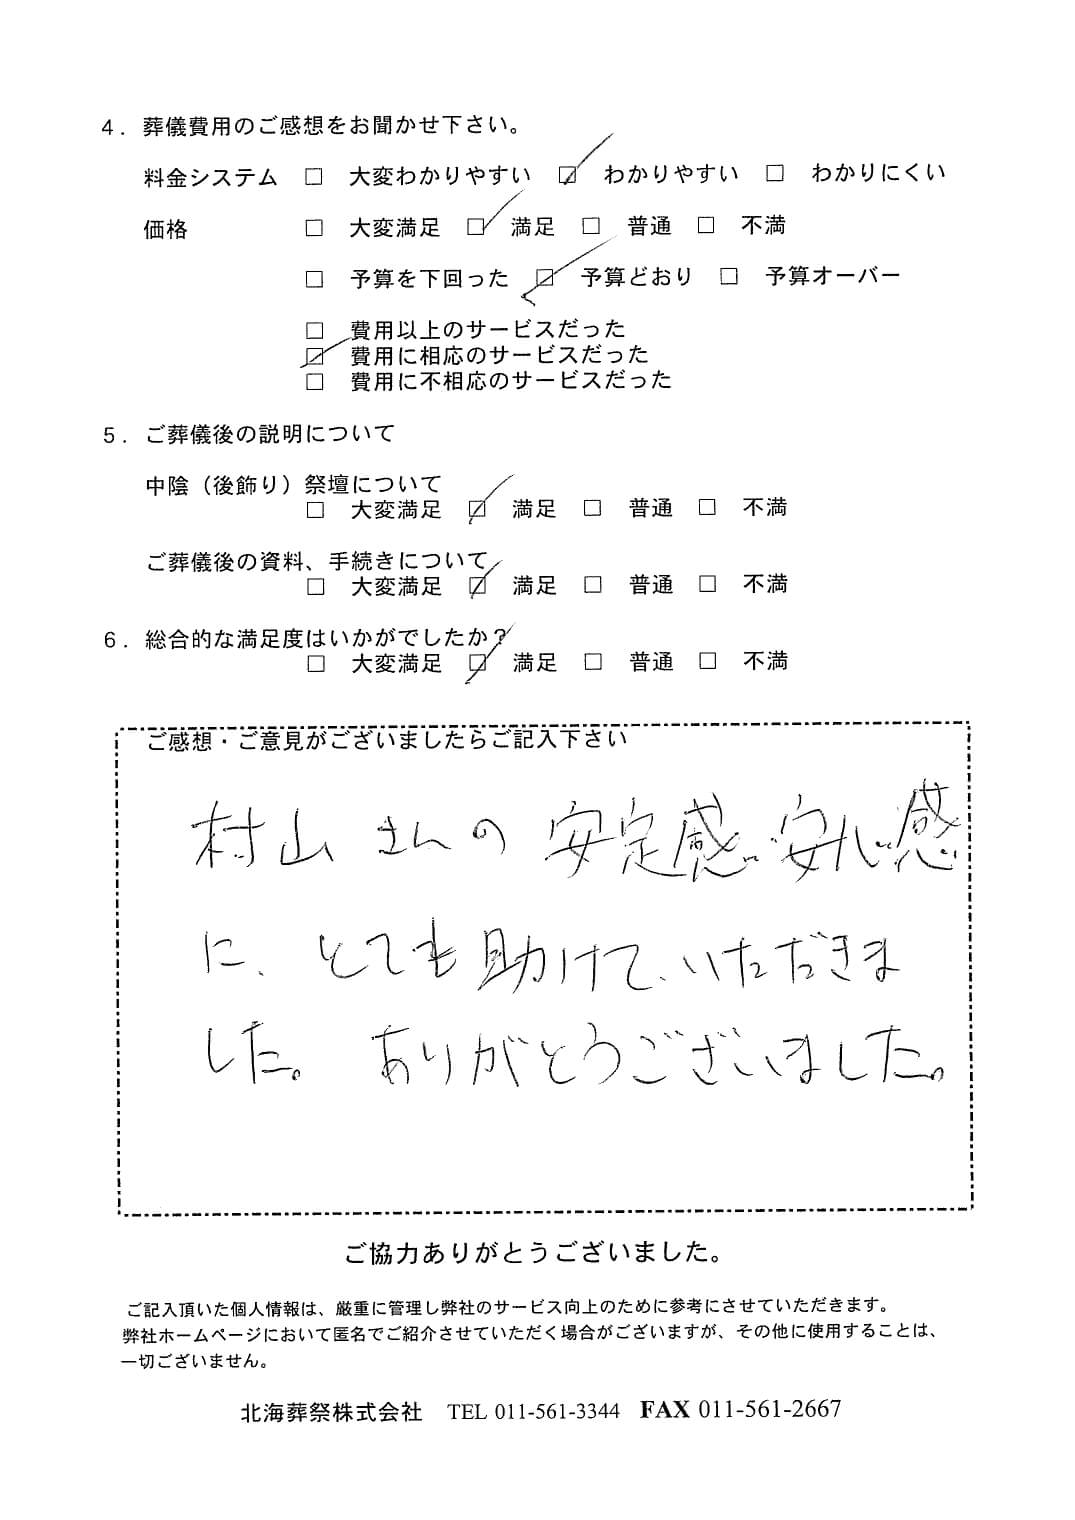 ４．葬儀費用のご感想をお聞かせ下さい。
料金システム □ 大変わかりやすい ☑ わかりやすい □ わかりにくい
価格 □ 大変満足 ☑ 満足 □ 普通 □ 不満
□ 予算を下回った ☑ 予算どおり □ 予算オーバー
□ 費用以上のサービスだった
☑ 費用に相応のサービスだった
□ 費用に不相応のサービスだった
５．ご葬儀後の説明について
中陰（後飾り）祭壇について
□ 大変満足 ☑ 満足 □ 普通 □ 不満
ご葬儀後の資料、手続きについて
□ 大変満足 ☑ 満足 □ 普通 □ 不満
６．総合的な満足度はいかがでしたか？
□ 大変満足 ☑ 満足 □ 普通 □ 不満
ご感想・ご意見がございましたらご記入下さい
村山さんの安定感、安心感
に、とても助けて、いただきま
した。ありがとうございました。
ご協力ありがとうございました。
ご記入頂いた個人情報は、厳重に管理し弊社のサービス向上のために参考にさせていただきます。
弊社ホームページにおいて匿名でご紹介させていただく場合がございますが、その他に使用することは、
一切ございません。
北海葬祭株式会社 TEL 011-561-3344 FAX 011-561-2667